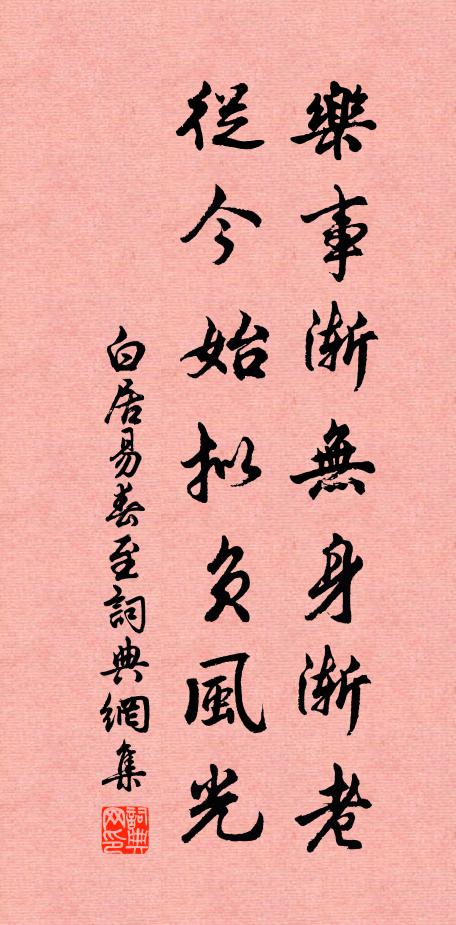 樂事漸無身漸老
從今始擬負風光
白居易春至詞典網集
詞典网印